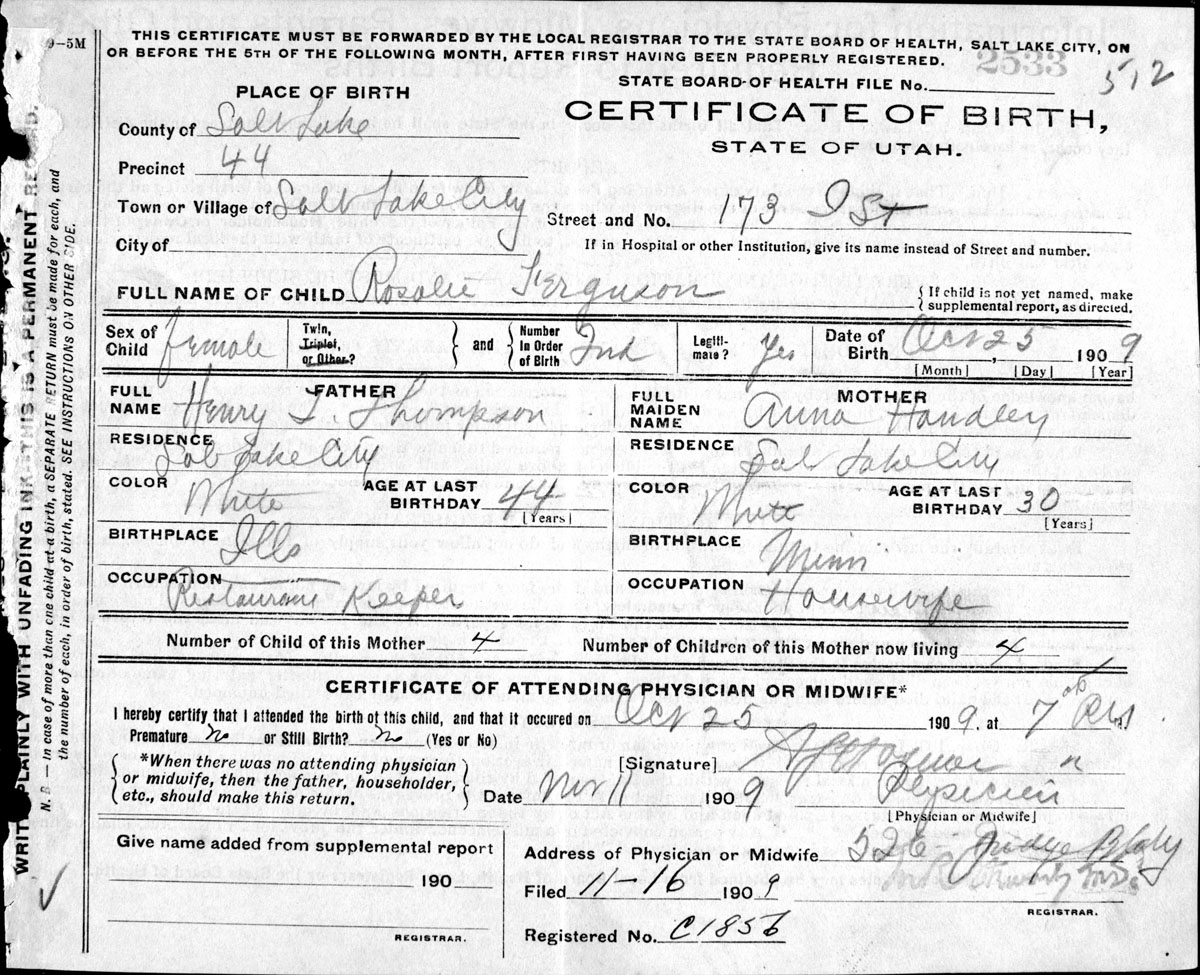 9-5M
THIS CERTIFICATE MUST BE FORWARDED BY THE LOCAL REGISTRAR TO THE STATE BOARD OF HEALTH, SALT LAKE CITY, ON
OR BEFORE THE 5TH OF THE FOLLOWING MONTH, AFTER FIRST HAVING BEEN PROPERLY REGISTERED.
2533
STATE BOARD OF HEALTH FILE No.
512
PLACE OF BIRTH
CERTIFICATE OF BIRTH,
STATE OF UTAH.
County of Salt Lake
Precinct 44
Town or Village of Salt Lake City
Street and No. 173 I St
City of
If in Hospital or other Institution, give its name instead of Street and number.
FULL NAME OF CHILD Rosalie Ferguson
{ If child is not yet named, make
supplemental report, as directed.
Sex of Child Female
Twin, Triplet, or Other?
} and {
Number in Order of Birth 2nd
Legitimate? Yes
Date of Birth Oct 25, 1909
[Month] [Day] [Year]
FATHER
FULL NAME Henry L. Thompson
RESIDENCE Salt Lake City
COLOR White AGE AT LAST BIRTHDAY 44
[Years]
BIRTHPLACE Ills
OCCUPATION Restaurant Keeper
MOTHER
FULL MAIDEN NAME Anna Handley
RESIDENCE Salt Lake City
COLOR White AGE AT LAST BIRTHDAY 30
[Years]
BIRTHPLACE Minn
OCCUPATION Housewife
Number of Child of this Mother 4 Number of Children of this Mother now living 4
CERTIFICATE OF ATTENDING PHYSICIAN OR MIDWIFE*
I hereby certify that I attended the birth of this child, and that it occured on Oct 25 1909, at 7 P.M.
Premature no or Still Birth? no (Yes or No)
{ *When there was no attending physician
or midwife, then the father, householder,
etc., should make this return. }
[Signature]
Date Nov 11 1909 Physician
[Physician or Midwife]
Give name added from supplemental report
190
REGISTRAR.
Address of Physician or Midwife Judge Bldg
Filed 11-16 1909
REGISTRAR.
Registered No. C1856
WRITE PLAINLY WITH UNFADING INK—THIS IS A PERMANENT RECORD.
N. B.—In case of more than one child at a birth, a SEPARATE RETURN must be made for each, and
the number of each, in order of birth, stated. SEE INSTRUCTIONS ON OTHER SIDE.